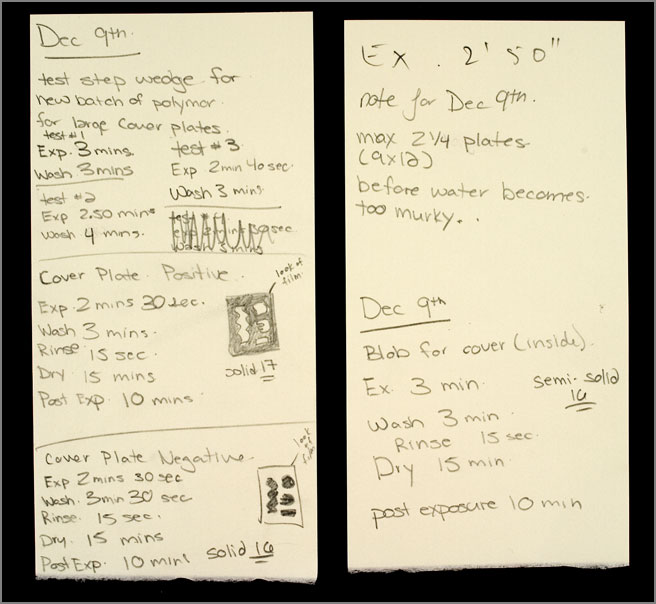 Dec 9th.
test step wedge for
new batch of polymer
for large cover plates.
test #1
Exp. 3 mins.
Wash 3 mins
test #3
Exp 2 min 40 sec.
Wash 3 mins.
test #2
Exp 2.50 mins
Wash 4 mins.
Cover Plate Positive
Exp 2 mins 30 sec.
Wash 3 mins.
Rinse 15 sec.
Dry 15 mins
Post Exp 10 mins
look of
film.
solid 17
Cover Plate Negative
Exp 2 mins 30 sec
Wash. 3 min 30 sec
Rinse. 15 sec.
Dry. 15 mins
Post Exp. 10 mins
look of
film.
solid 16
Ex. 2' 50"
note for Dec 9th.
max 2 1/4 plates
(9x12)
before water becomes
too murky..
Dec 9th
Blob for cover (inside).
Ex. 3 min.
semi-solid
16
Wash 3 min
Rinse 15 sec.
Dry 15 min
post exposure 10 min